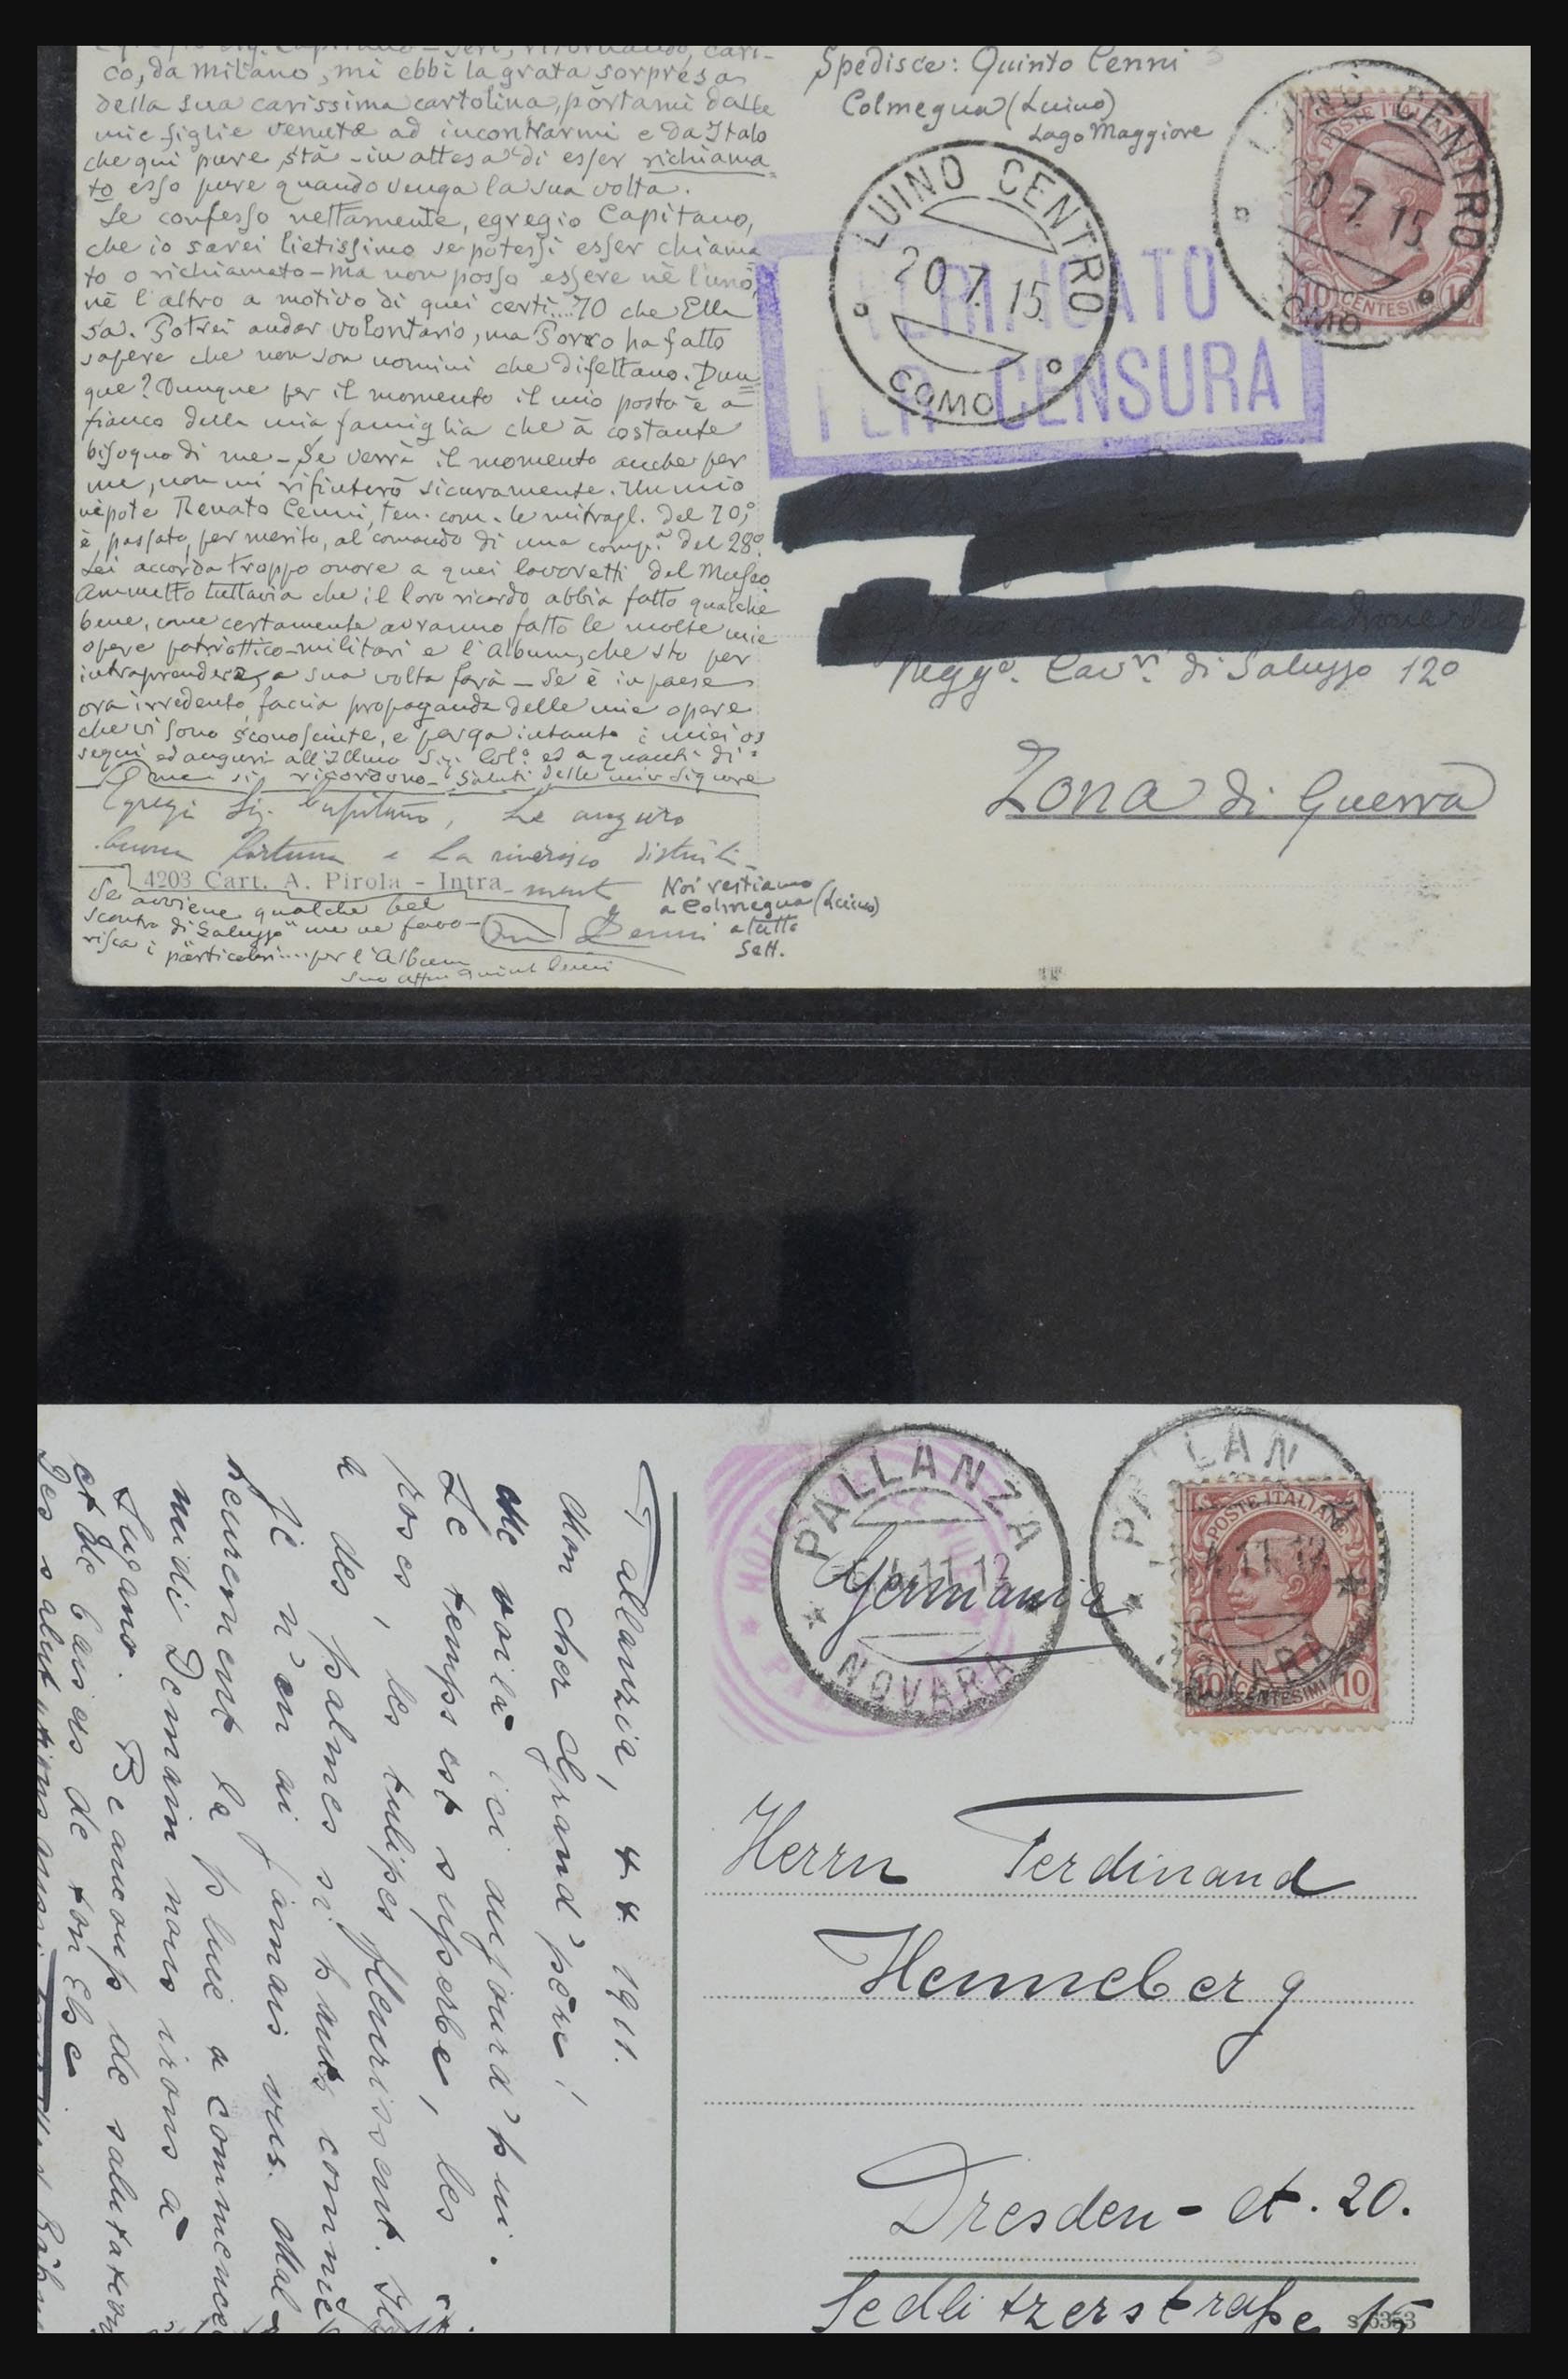 co, da Milano, mi ebbi la grata sorpresa
della sua carissima cartolina, portami dalle
mie figlie venute ad incontrarmi e da Italo
che qui pure stà - in attesa di esser richiama=
to esso pure quando venga la sua volta.
Le confesso nettamente, egregio Capitano,
che io sarei lietissimo se potessi esser chiama
to o richiamato - ma non posso essere nè l'uno,
nè l'altro a motivo di quei certi....70 che Ella
sa. Potrei andar volontario, ma Porro ha fatto
sapere che non son uomini che difettano. Dun=
que? Dunque per il momento il mio posto è a
fianco della mia famiglia che à costante
bisogno di me - Se verrà il momento anche per
me, non mi rifiuterò sicuramente. Un mio
nipote Renato Cenni, ten. com. le mitragl. del 70°,
è passato, per merito, al comando di una comp.ª del 28°.
Lei accorda troppo onore a quei lavoretti del Museo
Ammetto tuttavia che il loro ricordo abbia fatto qualche
bene, come certamente avranno fatto le molte mie
opere patriottico-militari e l'Album, che sto per
intraprendere, a sua volta farà - Se è in paese
ora irredento, faccia propaganda delle mie opere
che vi sono sconosciute, e porga intanto i miei os
sequi ed auguri all'Illmo Sig. Col.º ed a quanti di=
me si ricordano - Saluti delle mie Signore
Egregi Sig. Capitano, Le auguro
buona fortuna e La riverisco distinta-
mente
4203 Cart. A. Pirola - Intra
Se avviene qualche bel
scontro di "Saluzzo" me ne favo-
risca i particolari....per l'Album
suo affmo Quinto Cenni
Noi restiamo
a Colmegna (Luino)
a tutto
Sett.
Spedisce: Quinto Cenni
Colmegna (Luino)
Lago Maggiore
LUINO CENTRO
20.7.15
COMO
LUINO CENTRO
20.7.15
COMO
POSTE ITALIANE
10 CENTESIMI 10
VERIFICATO
PER CENSURA
Regg.º Cav.ri di Saluzzo 12º
Zona di Guerra
Pallanzia, 4 4. 1911.
Mon cher Grand'père!
Me voilà ici aujourd'hui.
Le temps est superbe, les
roses, les tulipes fleurissent. Il y
a des palmes si hauts comme
je n'en ai jamais vus. Mal-
heurement la pluie a commencé
midi. Demain nous irons à
Lugano. Beaucoup de salutations
et de baisers de ton Else
Des salutations aussi
PALLANZA
11.12
NOVARA
PALLANZA
11.12
NOVARA
HOTEL
POSTE ITALIANE
10 CENTESIMI 10
Germania
Herrn Ferdinand
Henneberg
Dresden - A. 20.
Sedlitzerstraße 15
s 6353